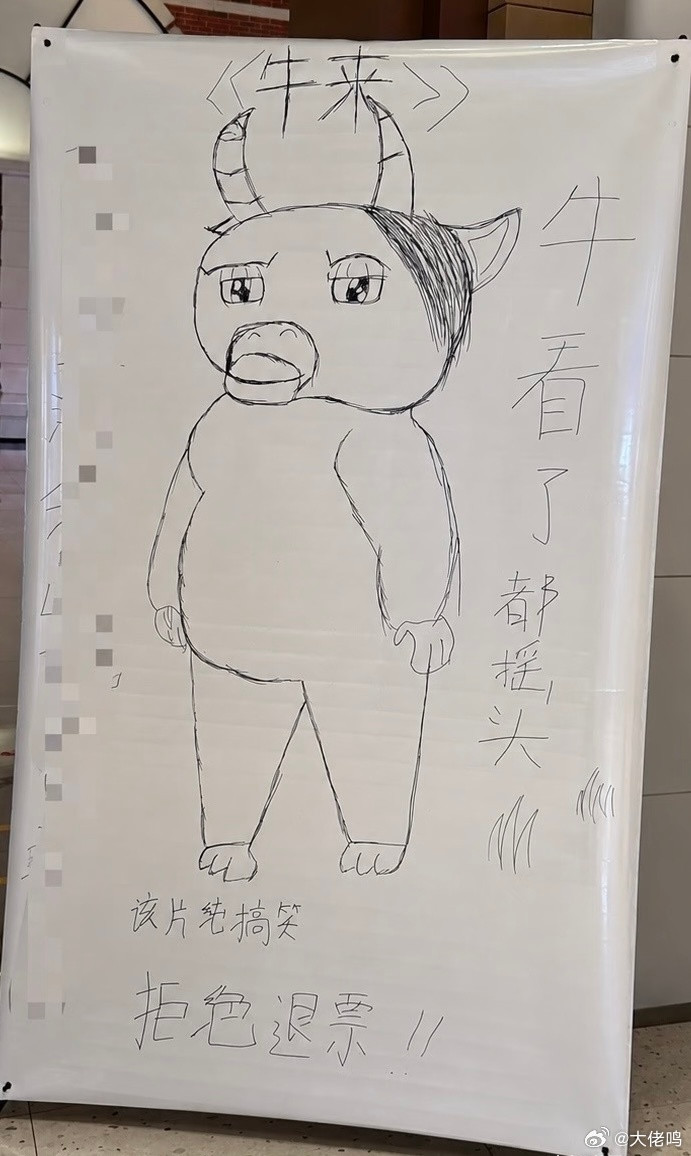 《牛来》
牛看了都摇头
该片纯搞笑
拒绝退票!!
@大佬鸣